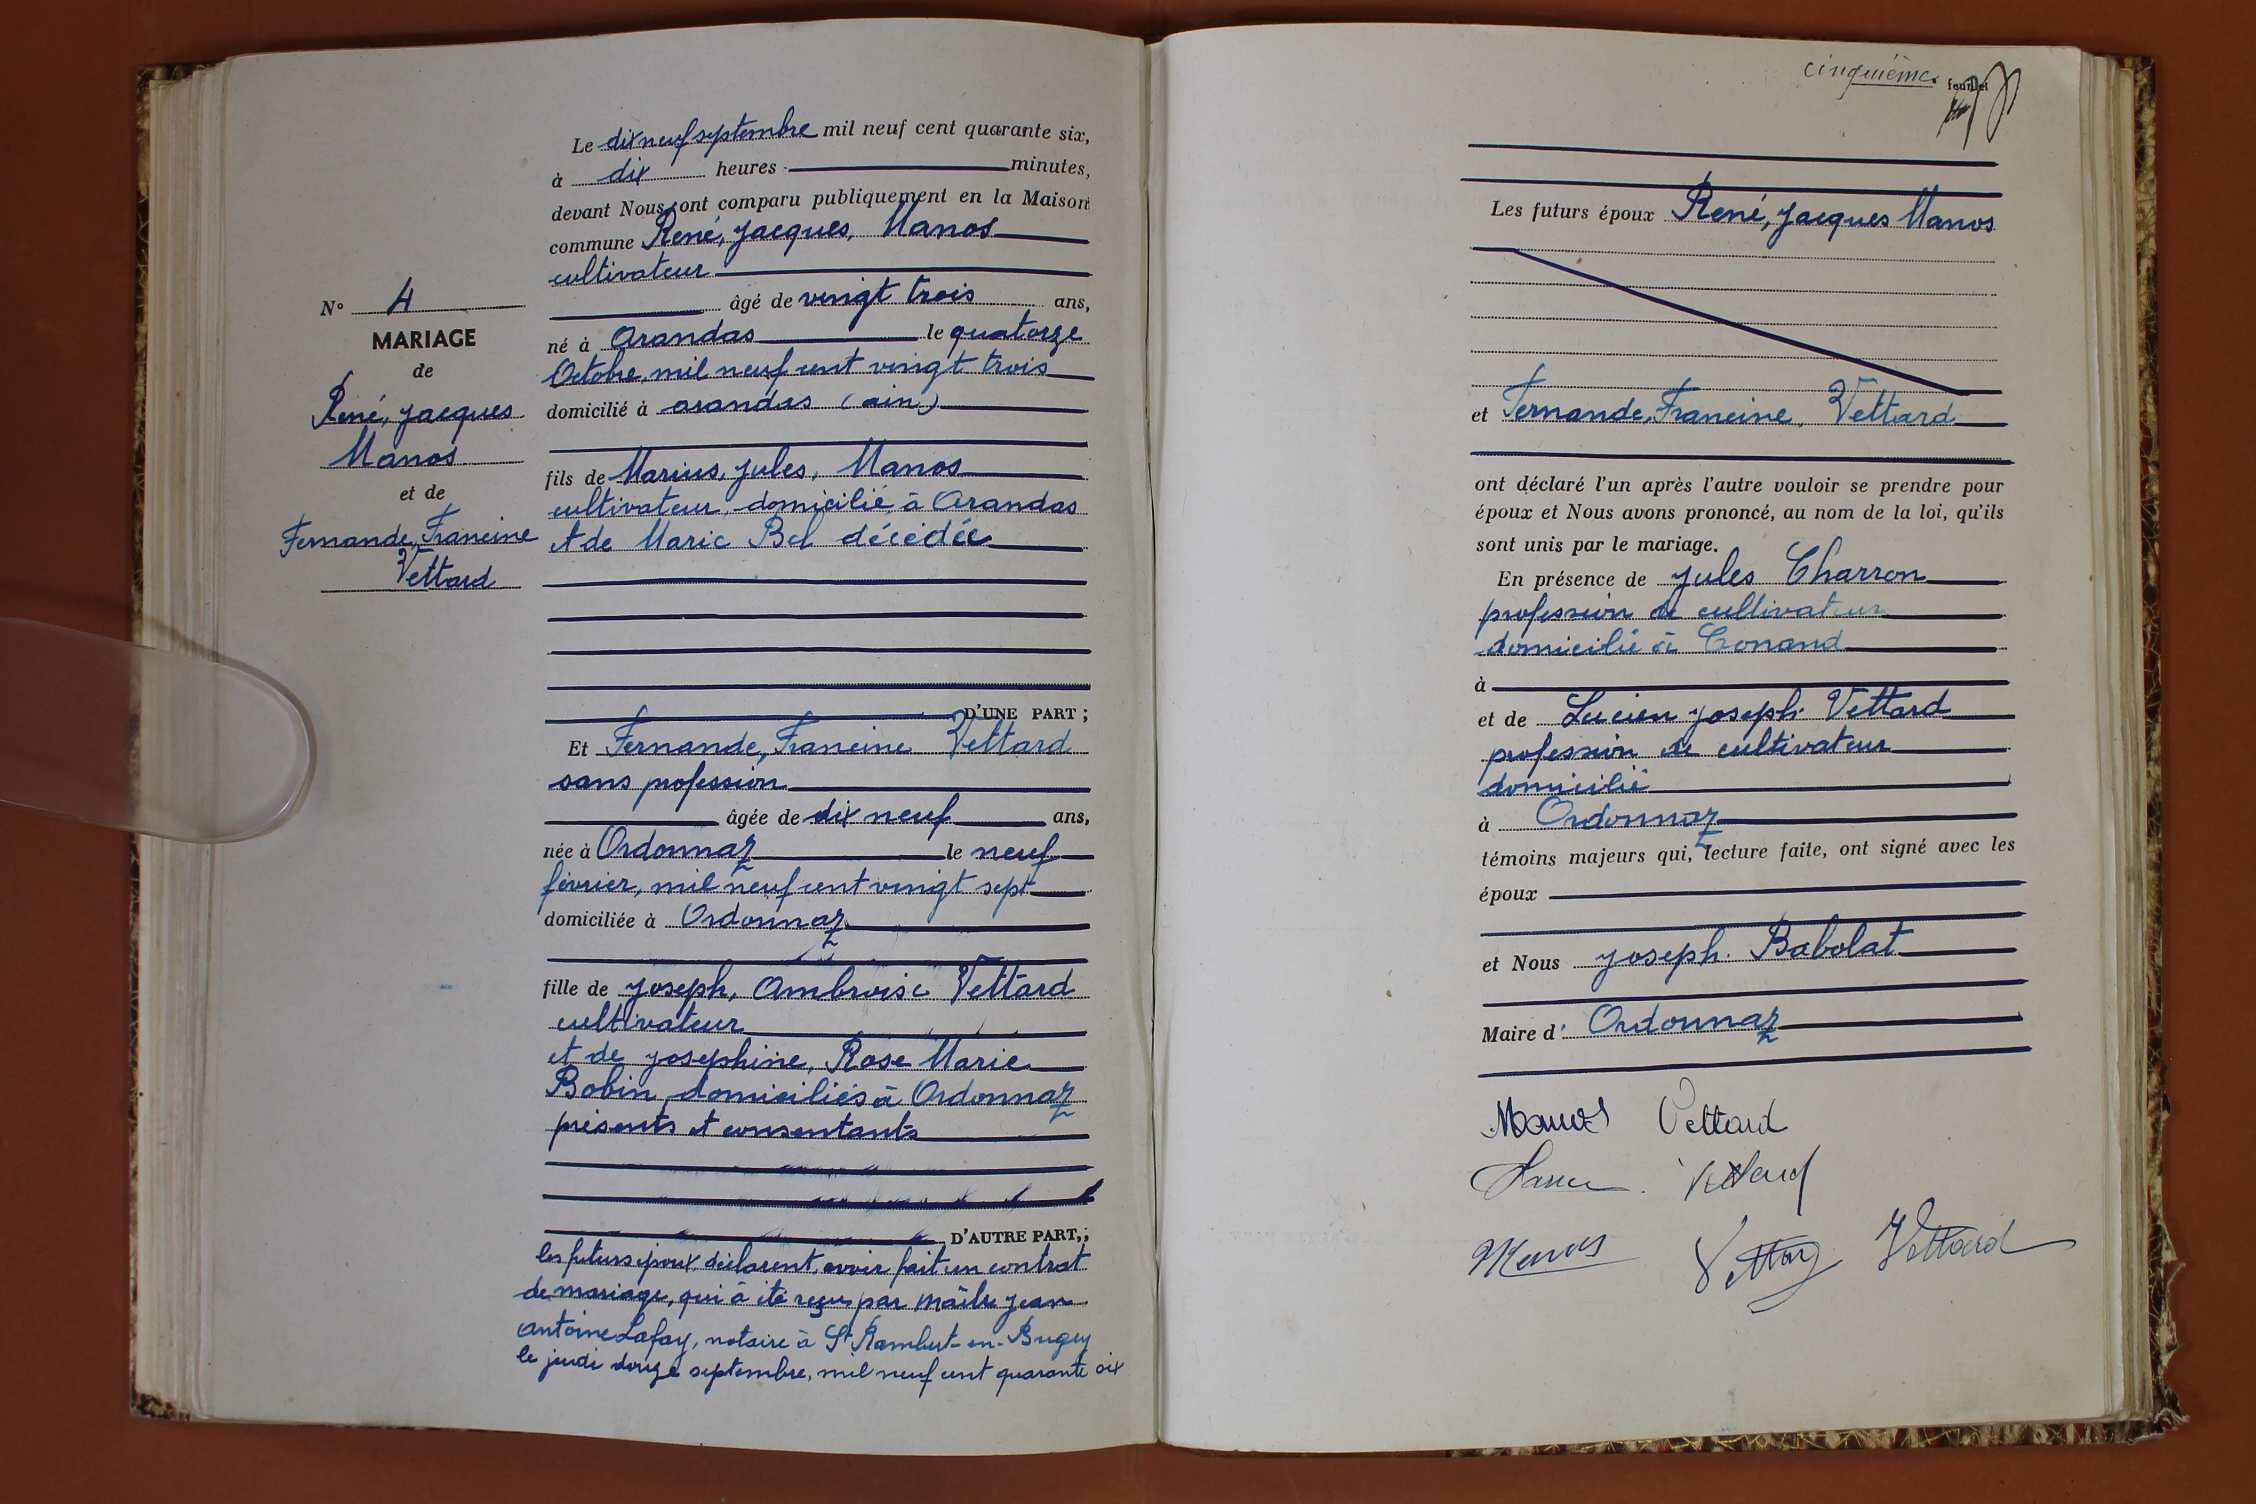 N° 4
MARIAGE
de
René, Jacques
Manos
et de
Fernande, Francine
Vettard
Le dix neuf septembre mil neuf cent quarante six,
à dix heures minutes,
devant Nous ont comparu publiquement en la Maison
commune René, Jacques, Manos
cultivateur
âgé de vingt trois ans,
né à Arandas le quatorze
Octobre, mil neuf cent vingt trois
domicilié à arandas (ain)
fils de Marius, Jules, Manos
cultivateur, domicilié à Arandas
et de Marie Bel décédée
D'UNE PART ;
Et Fernande, Francine Vettard
sans profession
âgée de dix neuf ans,
née à Ordonnaz le neuf
février, mil neuf cent vingt sept
domiciliée à Ordonnaz
fille de Joseph, Ambroise Vettard
cultivateur
et de Josephine, Rose Marie
Bobin domiciliés à Ordonnaz
présents et consentants
D'AUTRE PART,;
les futurs époux déclarent avoir fait un contrat
de mariage, qui à été reçu par maître Jean
Antoine Lafay, notaire à St Rambert-en-Bugey
le jeudi douze septembre, mil neuf cent quarante six
cinquième feuillet
Les futurs époux René, Jacques Manos
et Fernande, Francine, Vettard
ont déclaré l'un après l'autre vouloir se prendre pour
époux et Nous avons prononcé, au nom de la loi, qu'ils
sont unis par le mariage.
En présence de Jules Charron
profession de cultivateur
domicilié à Conand
à
et de Lucien Joseph Vettard
profession de cultivateur
domicilié
à Ordonnaz
témoins majeurs qui, lecture faite, ont signé avec les
époux
et Nous Joseph. Babolat
Maire d' Ordonnaz
Manos Vettard
Manos Vettard Vettard